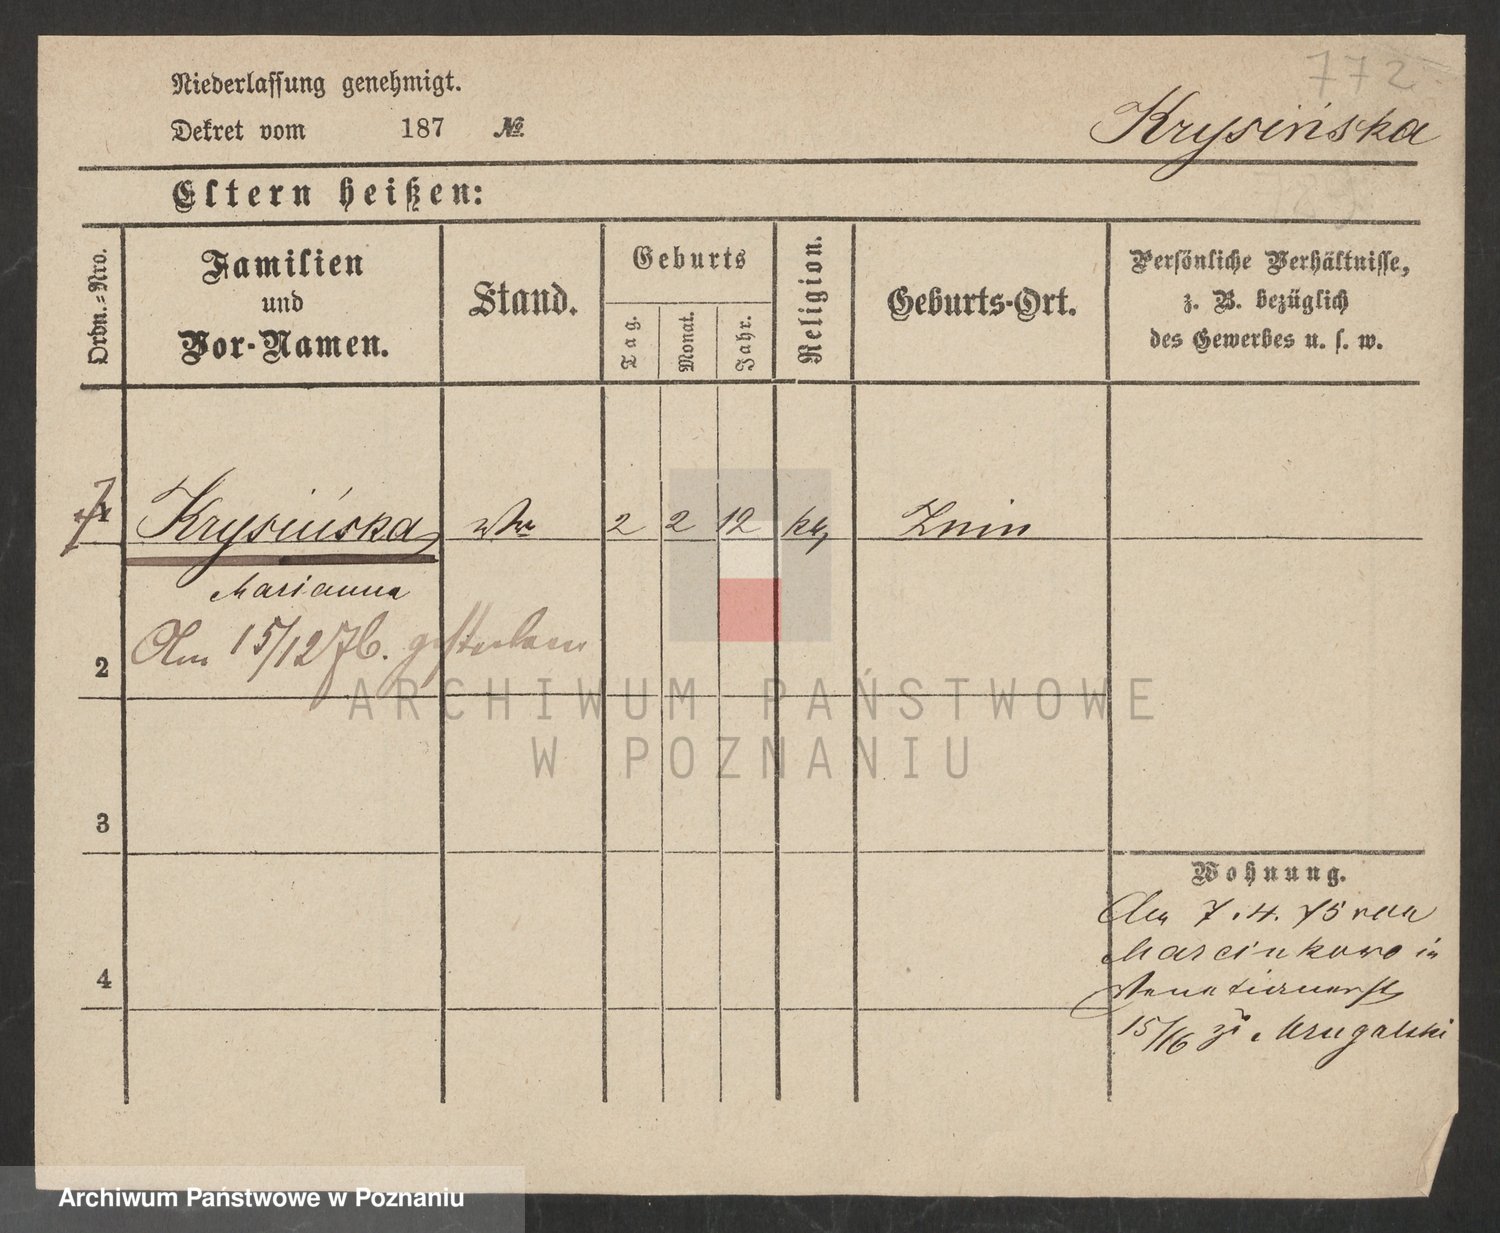 772
Niederlassung genehmigt.
Dekret vom 187 №
Krysińska
Eltern heißen:
Ordn.=Nro.
Familien
und
Vor-Namen.
Stand.
Geburts
Tag.
Monat.
Jahr.
Religion.
Geburts-Ort.
Persönliche Verhältnisse,
z. B. bezüglich
des Gewerbes u. s. w.
1 Krysińska Wwe 2 2 12 kth Znin
Marianna
Am 15/12 76. gestorben
2
ARCHIWUM PAŃSTWOWE
W POZNANIU
3
4
Wohnung.
Am 7. 4. 75 von
Marcinkowo in
Venetianerst
15/16 zu Mrugalski
Archiwum Państwowe w Poznaniu